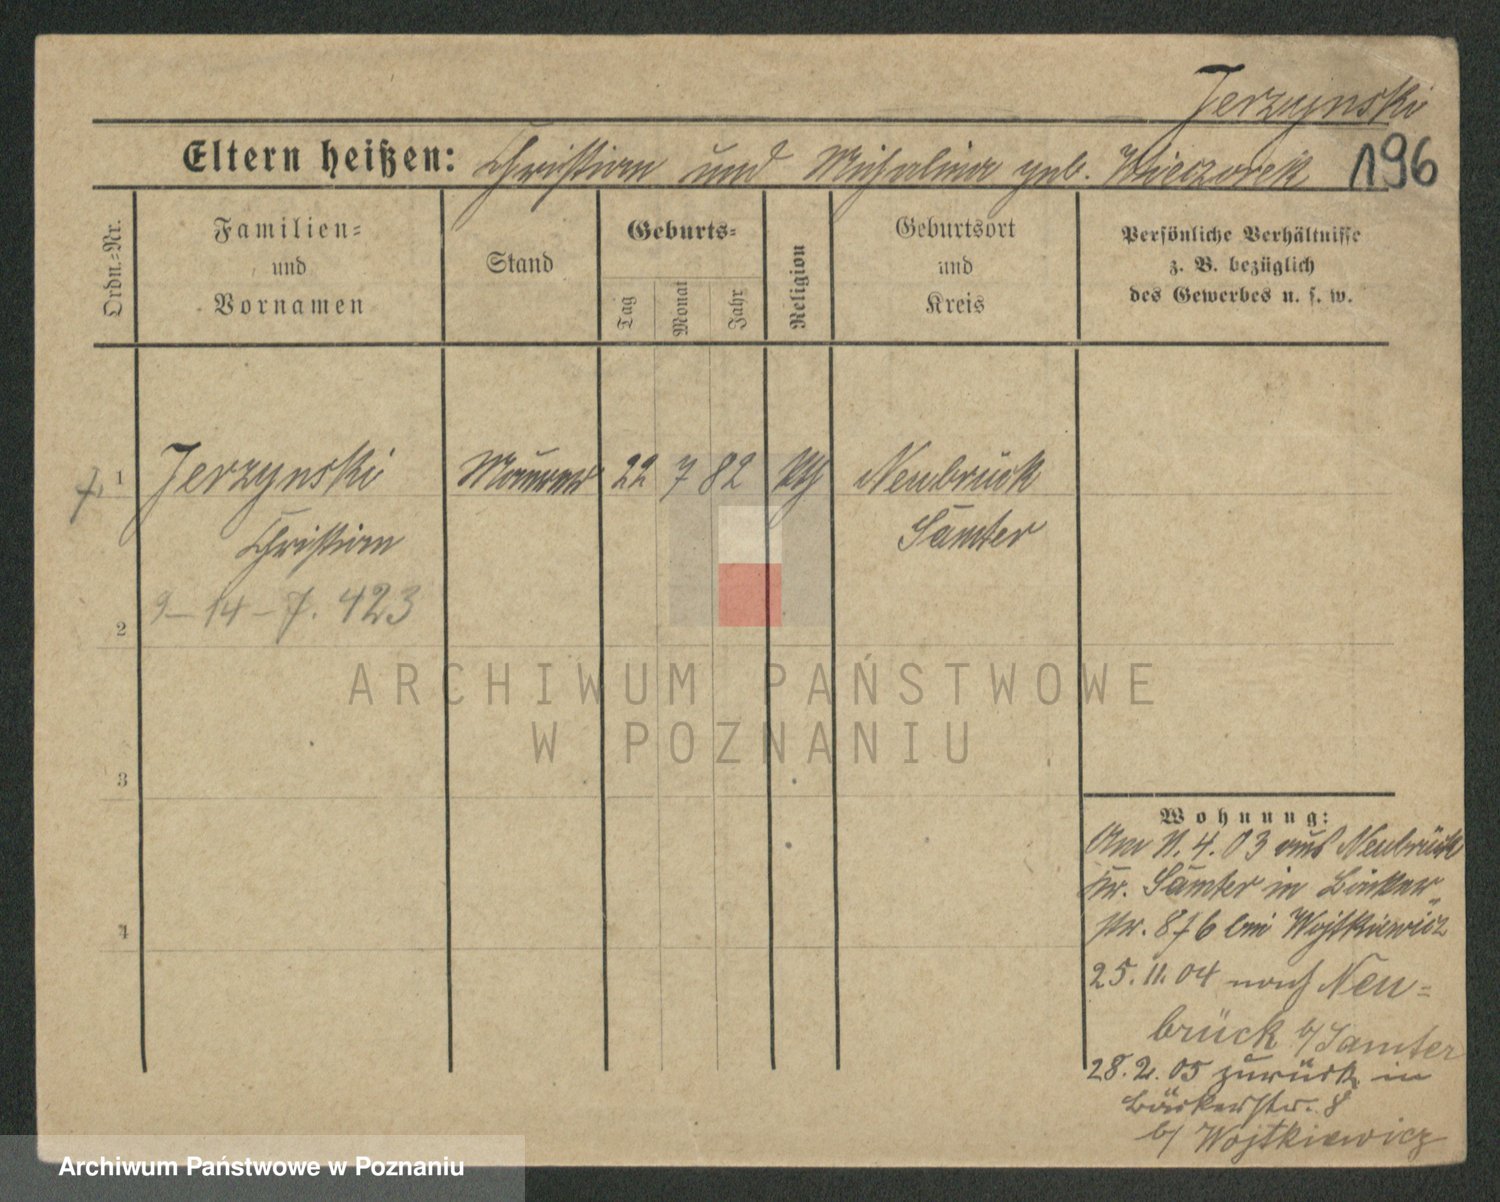 Jerzynski
Eltern heißen: Christian und Michalina geb. Wieczorek 196
Ordn.-Nr.
Familien-
und
Vornamen
Stand
Geburts-
Tag
Monat
Jahr
Religion
Geburtsort
und
Kreis
Persönliche Verhältnisse
z. B. bezüglich
des Gewerbes u. s. w.
1 Jerzynski Maurer 22 7 82 Neubrück
Christian Samter
9-14-7. 423
2
3
4
Wohnung:
Am 11. 4. 03 aus Neubrück
Kr. Samter in Bäcker
str. 8 bei Wojtkiewicz
25. 11. 04 nach Neu=
brück b/ Samter
28. 2. 05 zurück in
Bäckerstr. 8
b/ Wojtkiewicz
ARCHIWUM PAŃSTWOWE
W POZNANIU
Archiwum Państwowe w Poznaniu